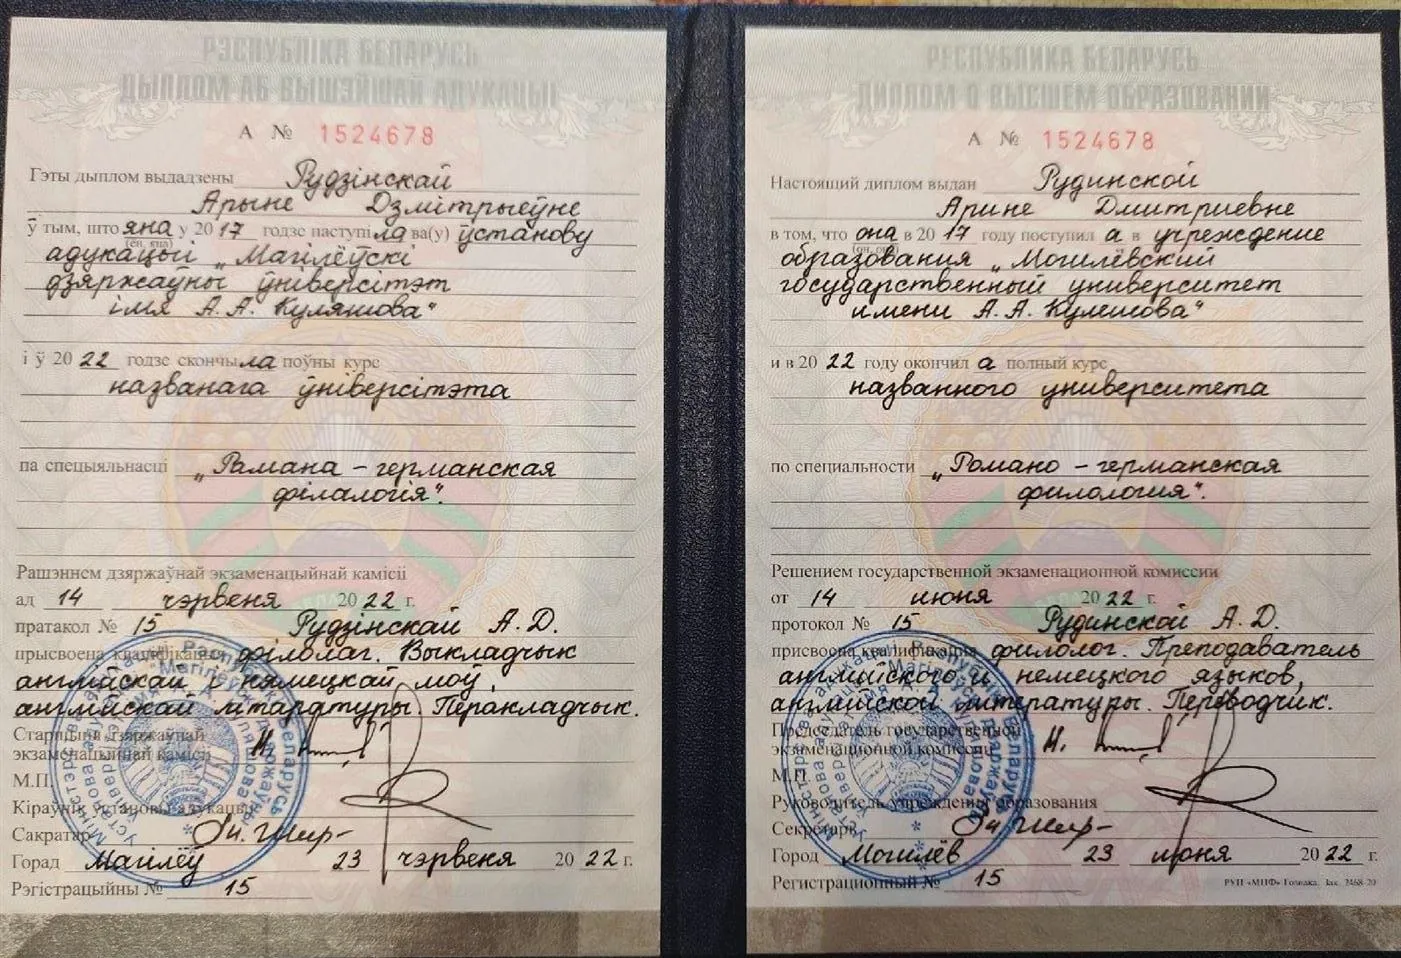 РЭСПУБЛІКА БЕЛАРУСЬ
ДЫПЛОМ АБ ВЫШЭЙШАЙ АДУКАЦЫІ
А № 1524678
Гэты дыплом выдадзены Рудзінскай
Арыне Дзмітрыеўне
ў тым, што яна у 2017 годзе наступіла ва(у) ўстанову
(ён, яна)
адукацыі „Магілёўскі
дзяржаўны ўніверсітэт
імя А.А. Куляшова"
і ў 2022 годзе скончыла поўны курс
названага ўніверсітэта
па спецыяльнасці „Рамана-германская
філалогія".
Рашэннем дзяржаўнай экзаменацыйнай камісіі
ад 14 чэрвеня 2022 г.
пратакол № 15 Рудзінскай А.Д.
прысвоена кваліфікацыя філолаг. Выкладчык
англійскай і нямецкай моў,
англійскай літаратуры. Перакладчык.
Старшыня дзяржаўнай
экзаменацыйнай камісіі
М.П.
Кіраўнік установы адукацыі
Сакратар
Горад Магілёў 23 чэрвеня 2022 г.
Рэгістрацыйны № 15
РЕСПУБЛИКА БЕЛАРУСЬ
ДИПЛОМ О ВЫСШЕМ ОБРАЗОВАНИИ
А № 1524678
Настоящий диплом выдан Рудинской
Арине Дмитриевне
в том, что она в 2017 году поступила в учреждение
(он, она)
образования „Могилёвский
государственный университет
имени А.А. Кулешова"
и в 2022 году окончила полный курс
названного университета
по специальности „Романо-германская
филология".
Решением государственной экзаменационной комиссии
от 14 июня 2022 г.
протокол № 15 Рудинской А.Д.
присвоена квалификация филолог. Преподаватель
английского и немецкого языков,
английской литературы. Переводчик.
Председатель государственной
экзаменационной комиссии
М.П.
Руководитель учреждения образования
Секретарь
Город Могилёв 23 июня 2022 г.
Регистрационный № 15
РУП «МПФ» Гознака. Зак. 2468-20